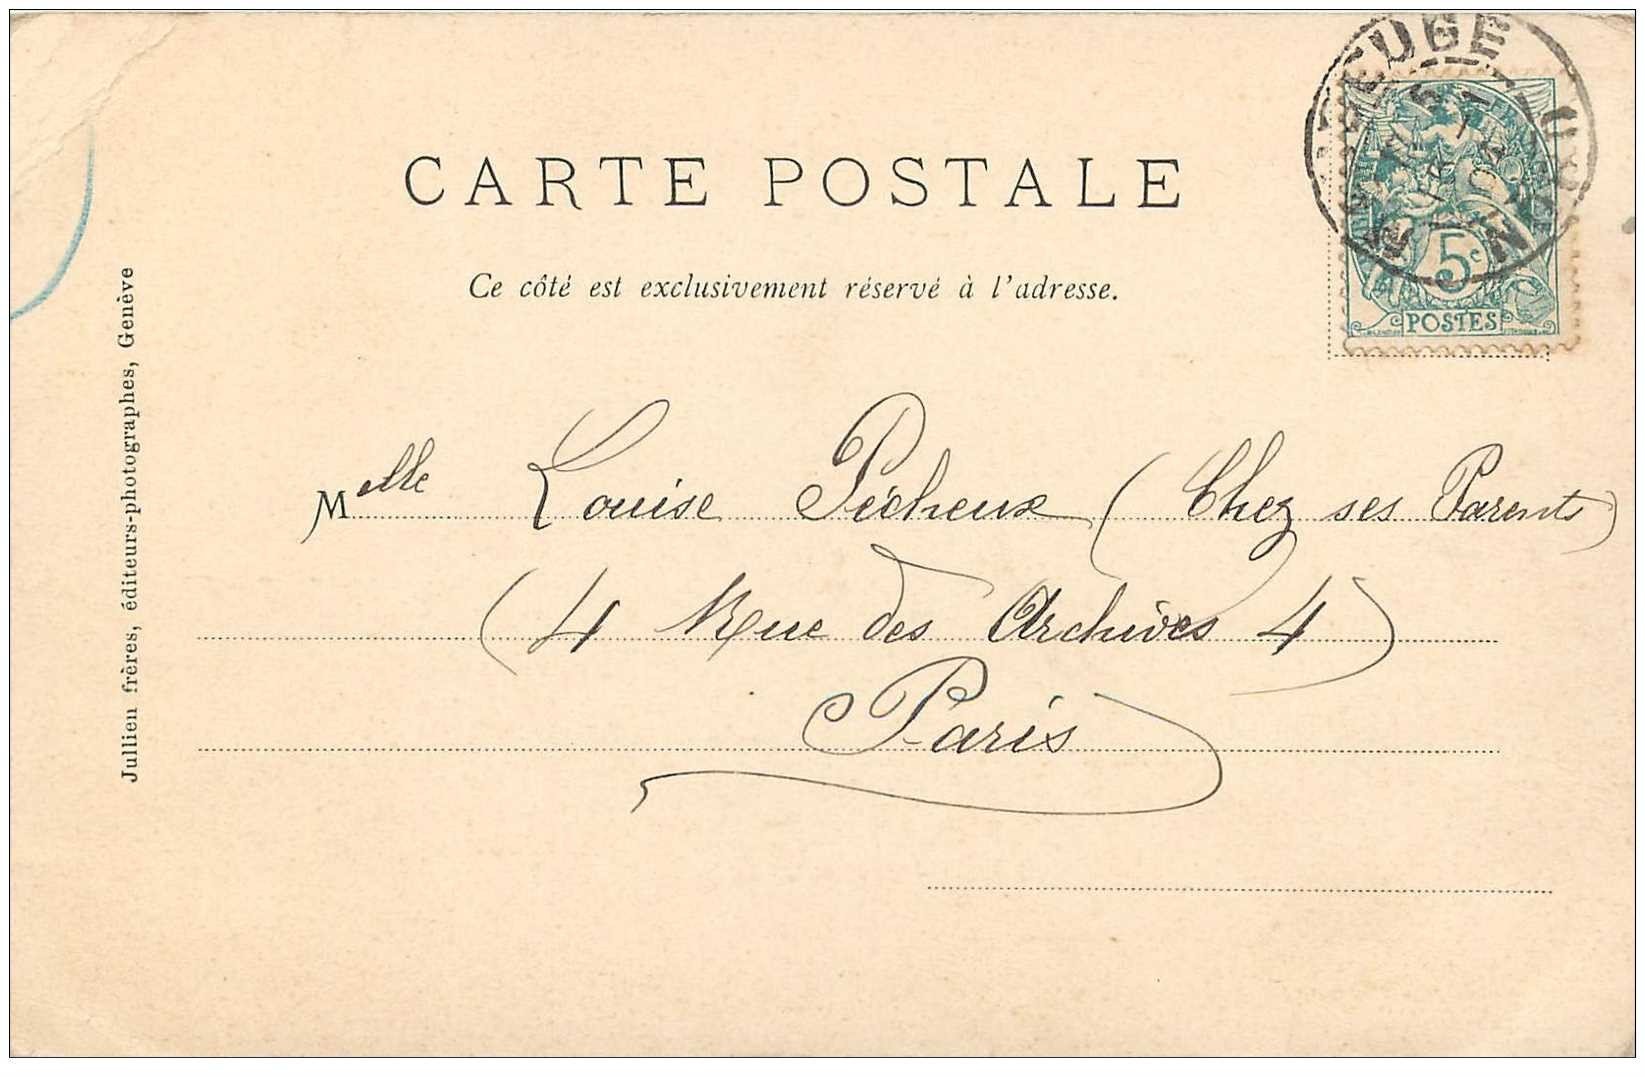 CARTE POSTALE
Ce côté est exclusivement réservé à l'adresse.
5c
POSTES
Melle Louise Pécheux (Chez ses Parents)
(4 Rue des Archives 4)
Paris
Jullien frères, éditeurs-photographes, Genève